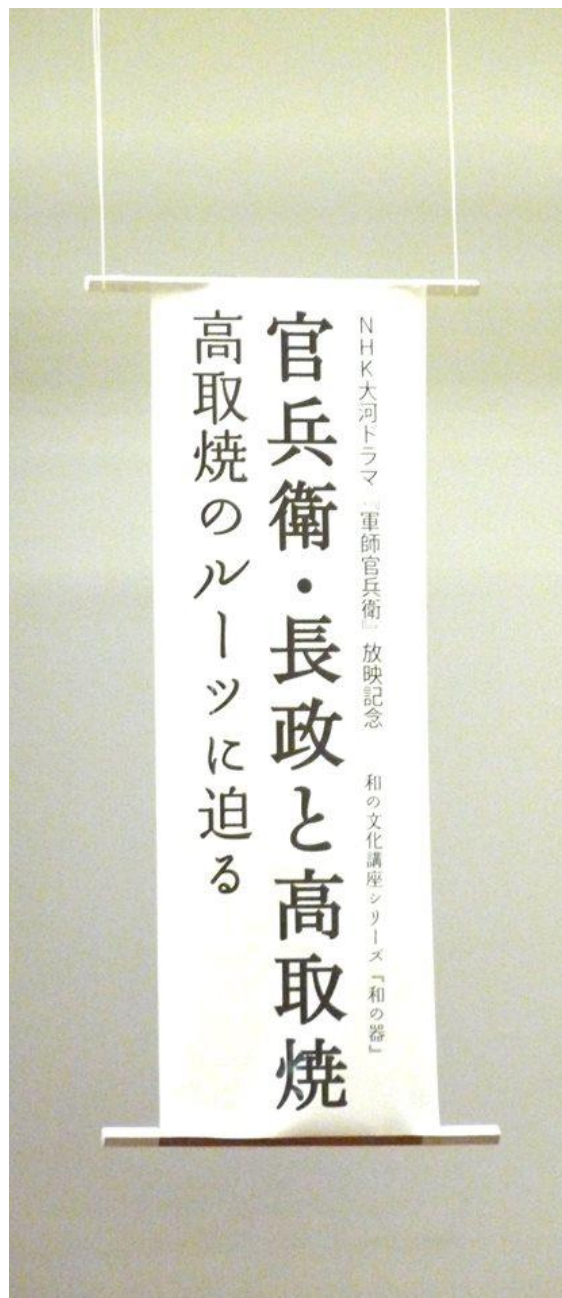 NHK大河ドラマ『軍師官兵衛』放映記念 和の文化講座シリーズ「和の器」
官兵衛・長政と高取焼
高取焼のルーツに迫る